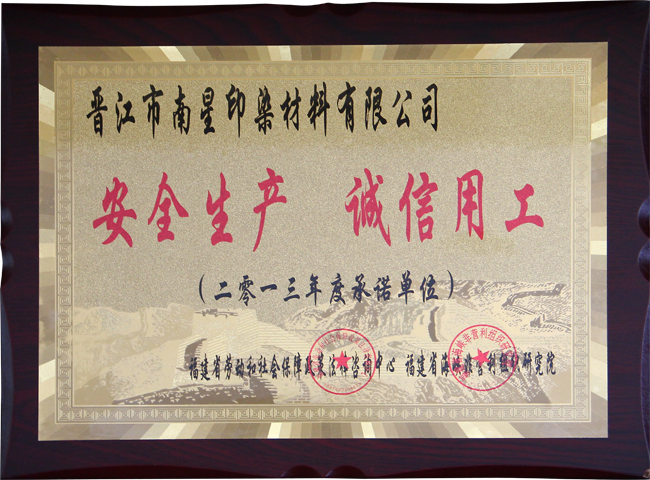 晋江市南星印染材料有限公司
安全生产 诚信用工
(二零一三年度承诺单位)
福建省劳动和社会保障政策法律咨询中心 福建省海峡非营利组织研究院